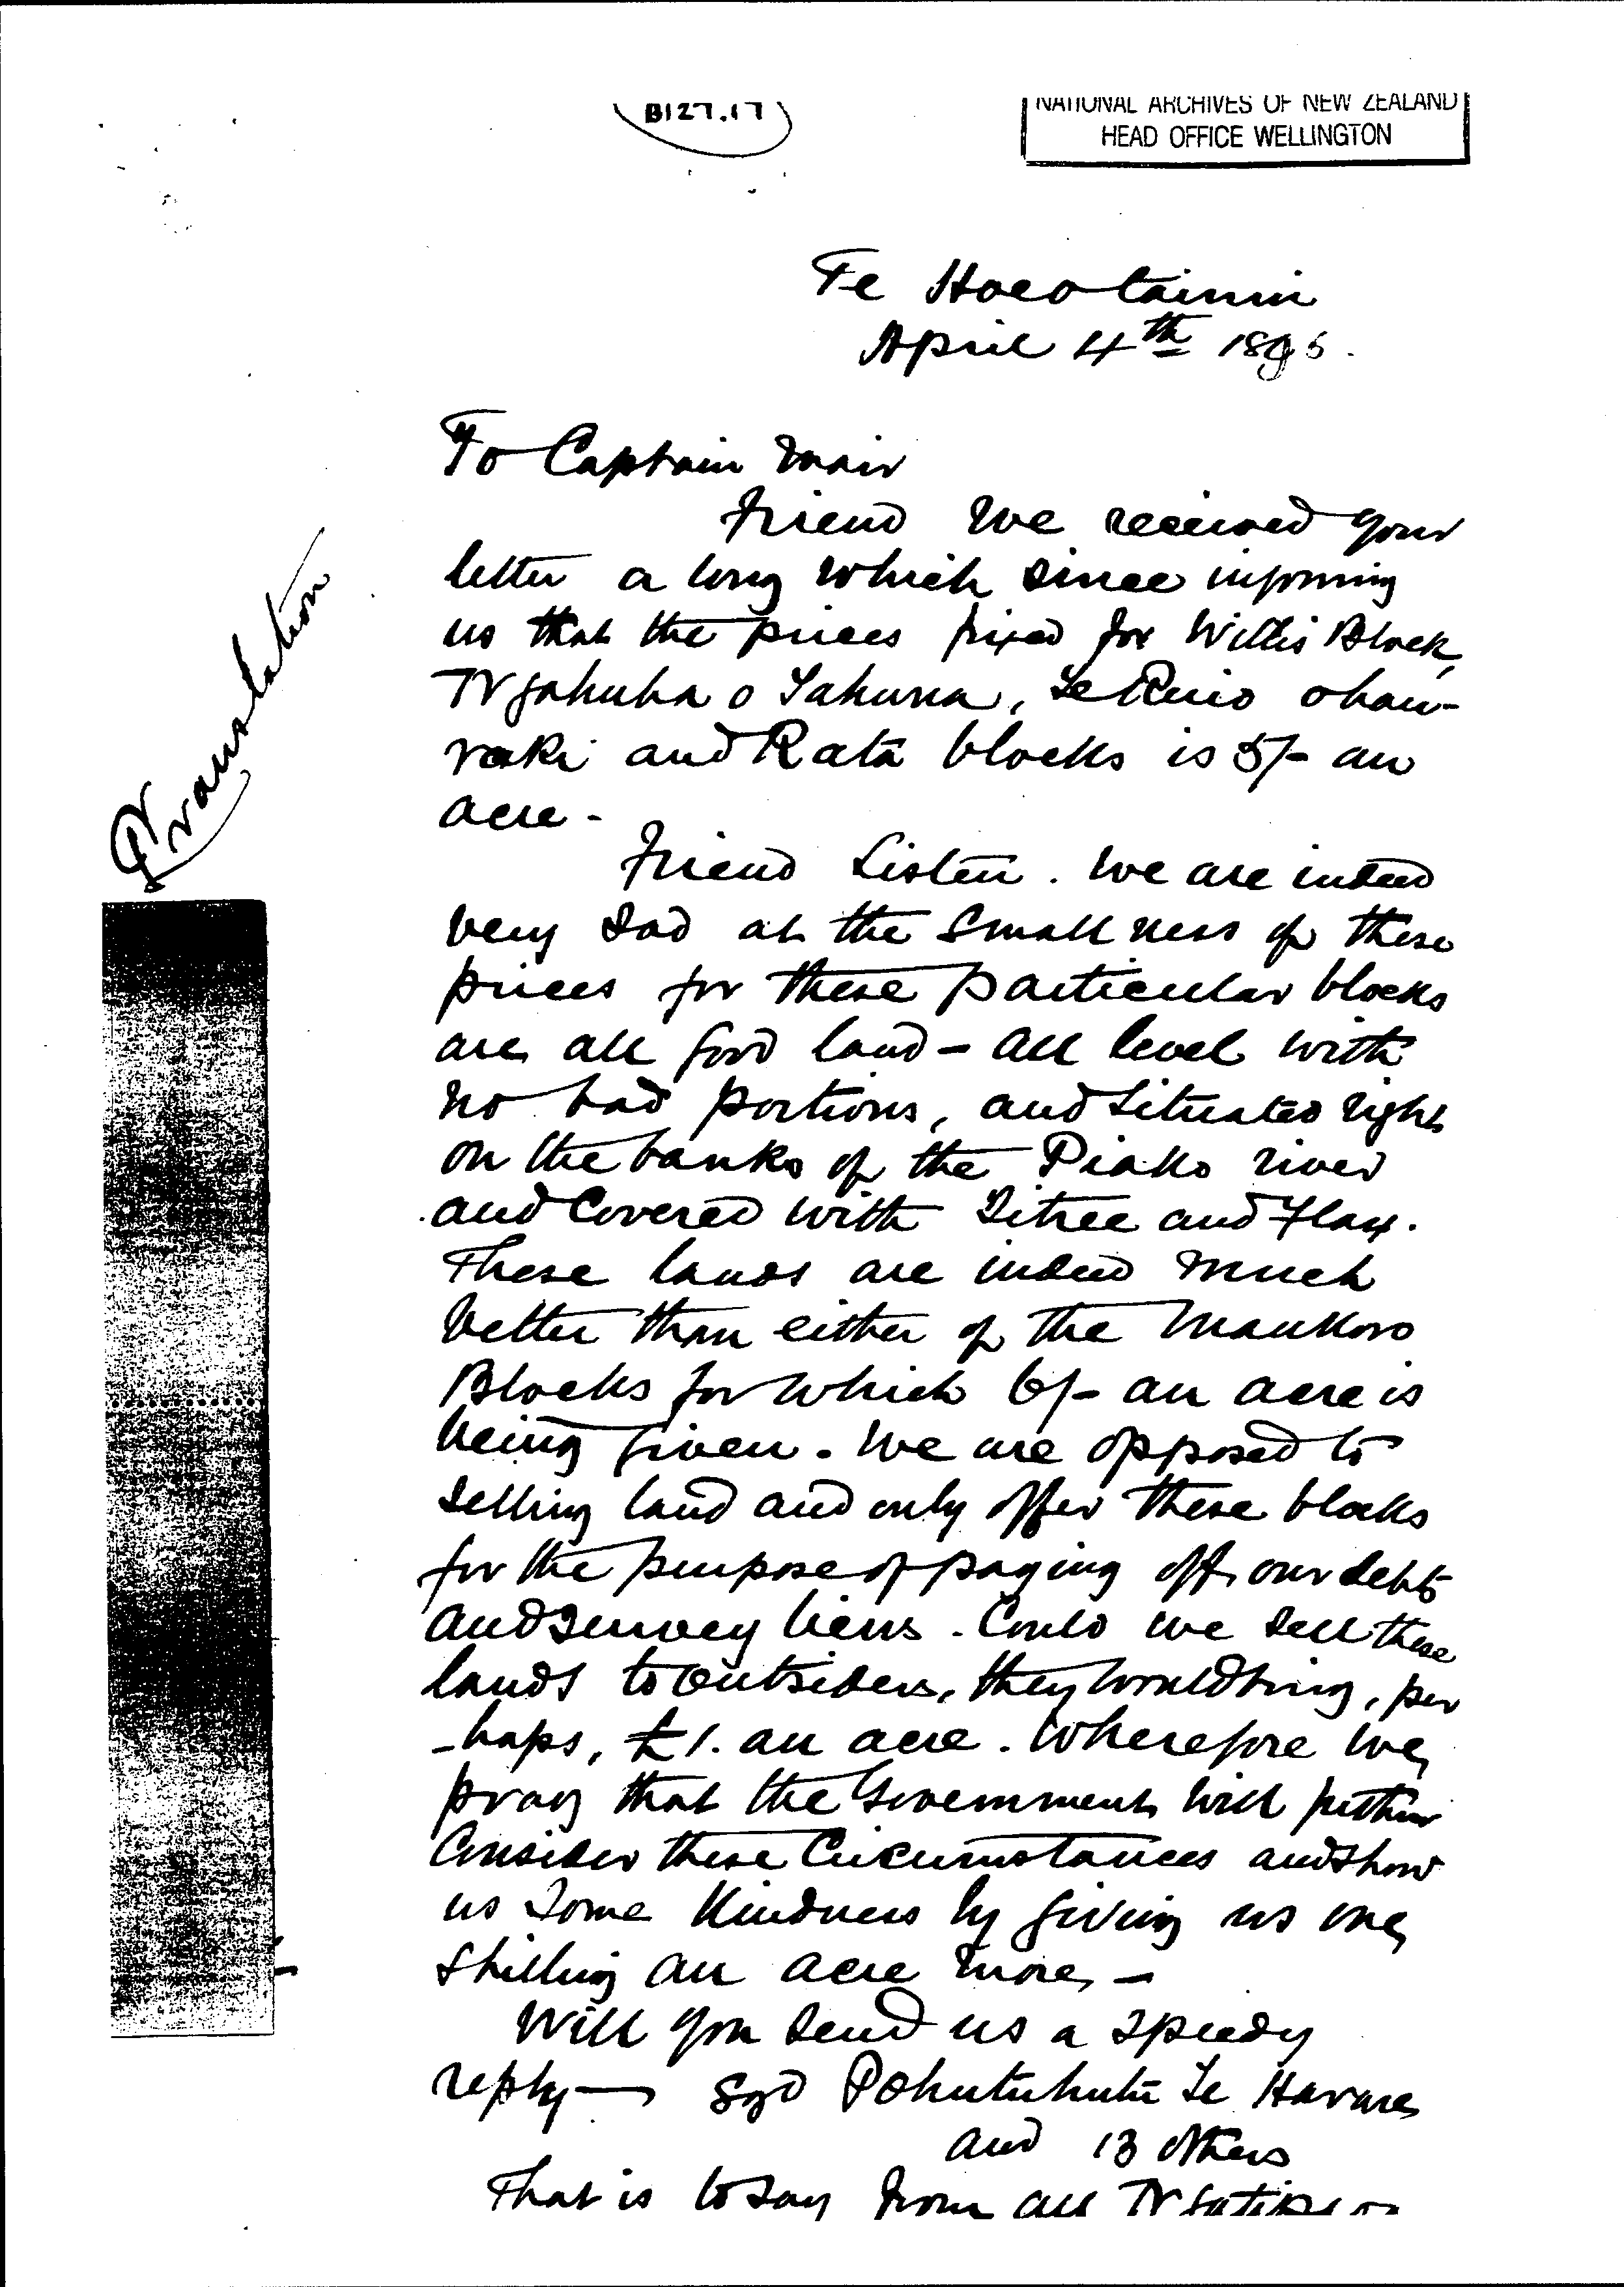 B127.17
NATIONAL ARCHIVES OF NEW ZEALAND
HEAD OFFICE WELLINGTON
Te Hoeotainui
April 4th 1895.
Translation
To Captain Mair
Friend we received your
letter a long which since informing
us that the prices fixed for Willis Block,
Ngahuha o Tahuna, Te Ruio ohau-
raki and Rata blocks is 5/- an
acre -
Friend Listen. We are indeed
very sad at the Smallness of these
prices for these particular blocks
are all good land - all level with
no bad portions, and situated right
on the banks of the Piako river
and covered with Titree and Flax.
These lands are indeed much
better than either of the Maukoro
Blocks for which 6/- an acre is
being given. We are opposed to
selling land and only offer these blocks
for the purpose of paying off our debts
and survey liens. Could we sell these
lands to outsiders, they would bring, per
-haps, £1. an acre. Wherefore we
pray that the Government will further
Consider these Circumstances and show
us some Kindness by giving us one
shilling an acre more, -
Will you send us a speedy
reply — Sgd Pohutuhutu Te Havare
and 13 others
That is to say from all